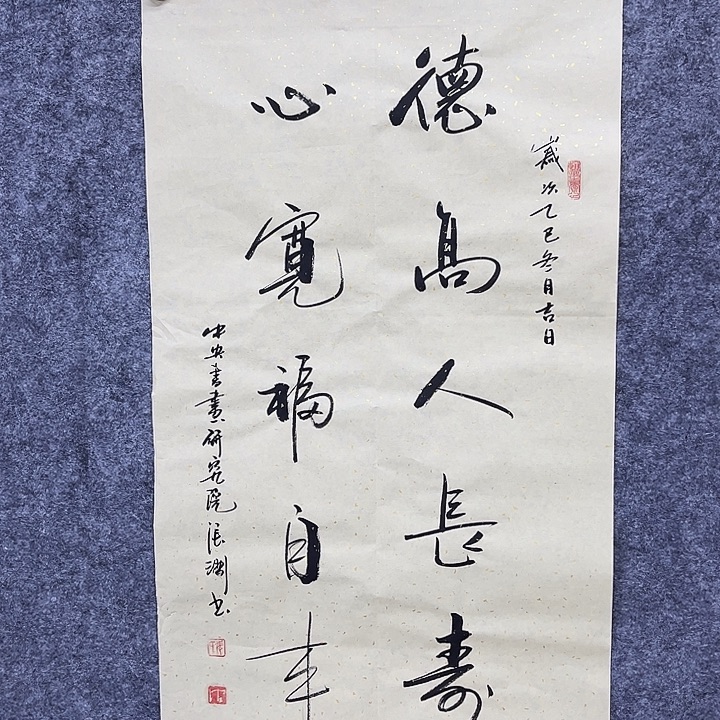 歲次乙巳冬月吉日
德高人長壽
心寬福自来
中央書畫研究院張渊书